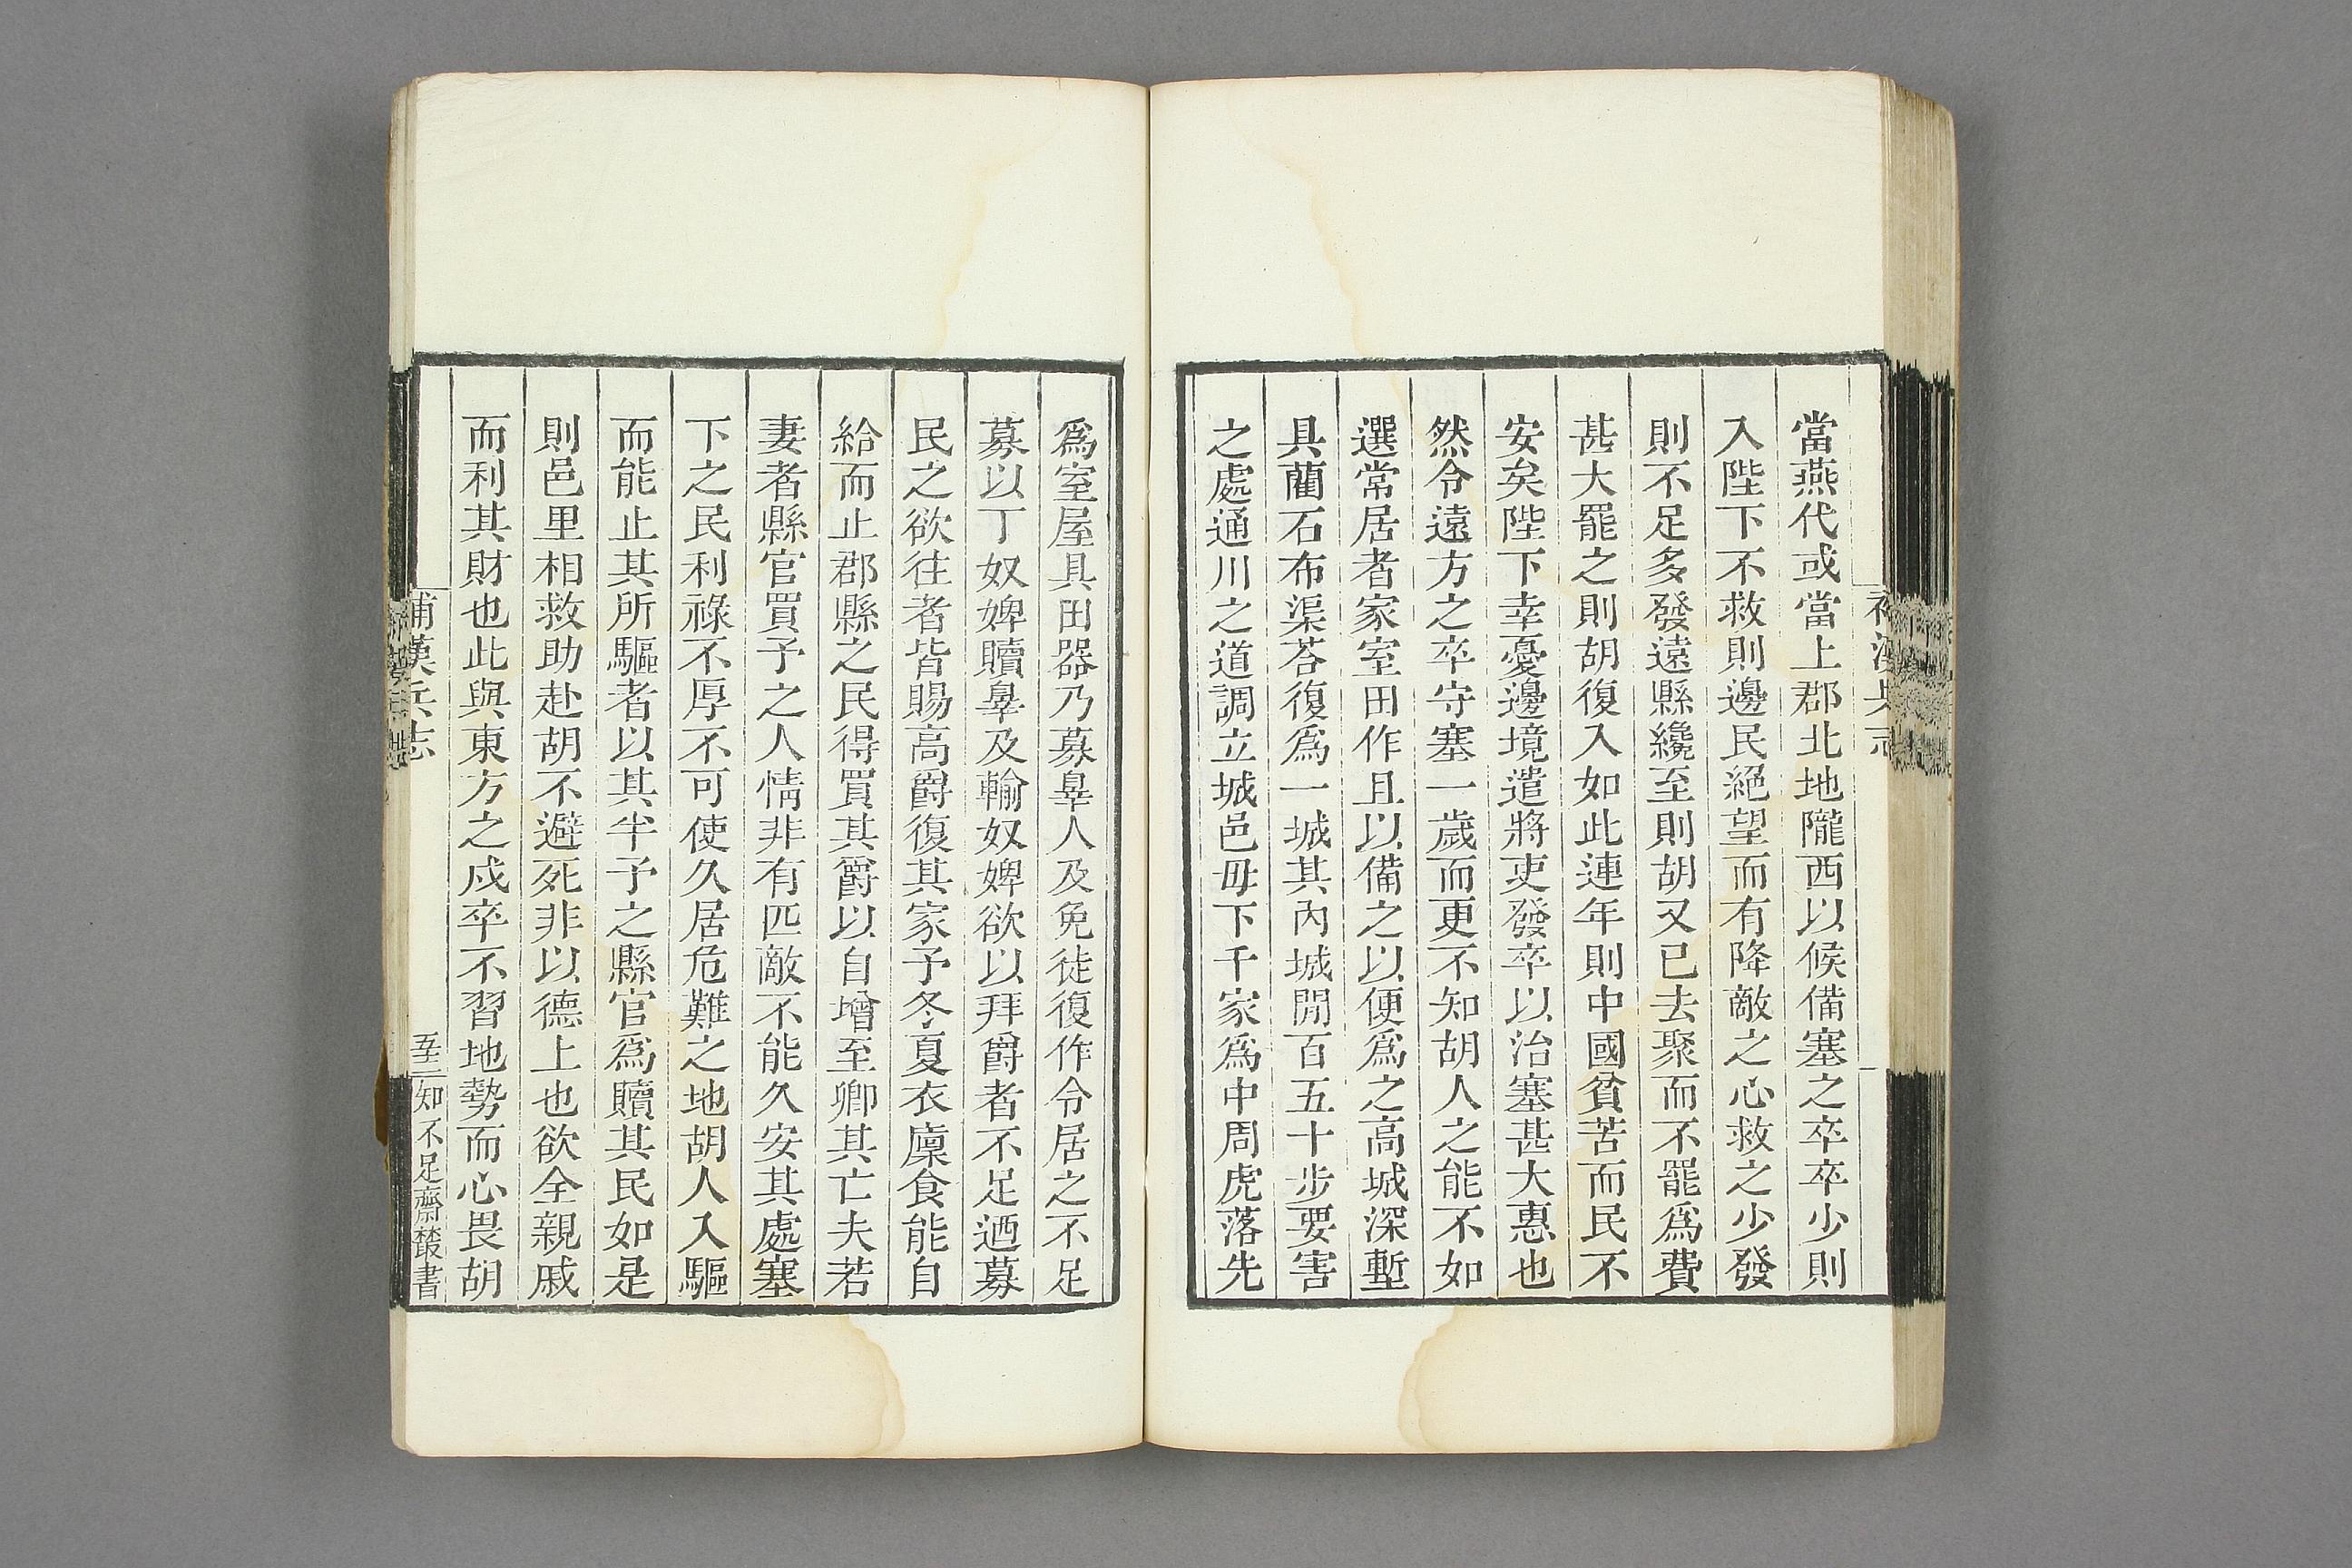 當燕代或當上郡北地隴西以候備塞之卒卒少則
入陛下不救則邊民絕望而有降敵之心救之少發
則不足多發遠縣纔至則胡又已去聚而不罷爲費
甚大罷之則胡復入如此連年則中國貧苦而民不
安矣陛下幸憂邊境遣將吏發卒以治塞甚大惠也
然令遠方之卒守塞一歲而更不知胡人之能不如
選常居者家室田作且以備之以便爲之高城深塹
具藺石布渠荅復爲一城其內城閒百五十步要害
之處通川之道調立城邑毋下千家爲中周虎落先
爲室屋具田器乃募辠人及免徒復作令居之不足
募以丁奴婢贖辠及輸奴婢欲以拜爵者不足迺募
民之欲往者皆賜高爵復其家予冬夏衣廩食能自
給而止郡縣之民得買其爵以自增至卿其亡夫若
妻者縣官買予之人情非有匹敵不能久安其處塞
下之民利祿不厚不可使久居危難之地胡人入驅
而能止其所驅者以其半予之縣官爲贖其民如是
則邑里相救助赴胡不避死非以德上也欲全親戚
而利其財也此與東方之戍卒不習地勢而心畏胡
補漢兵志
知不足齋叢書